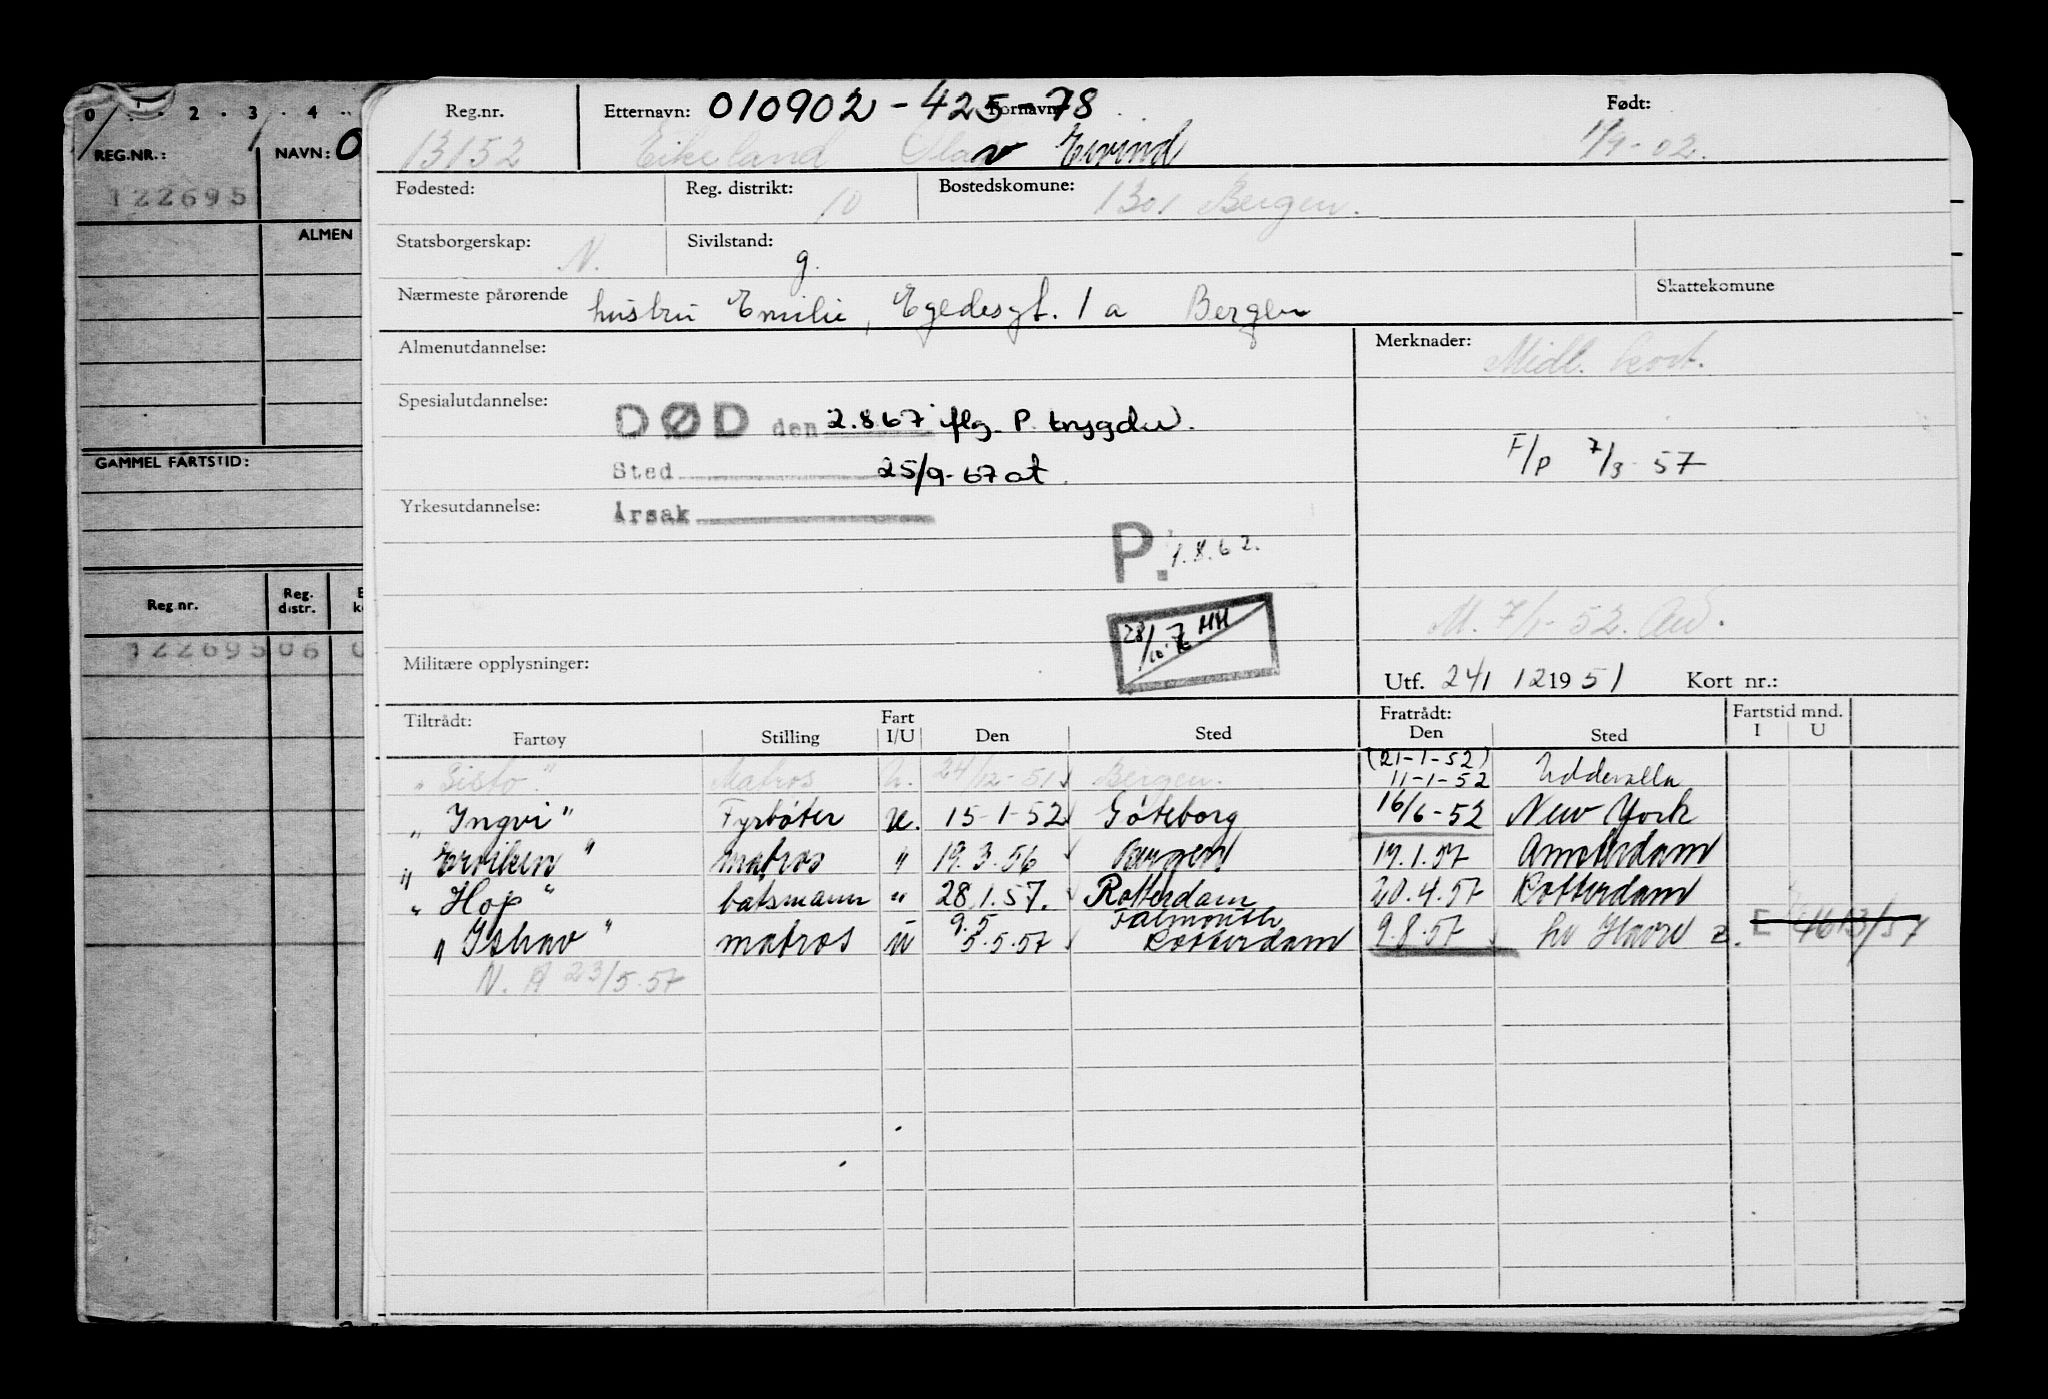 0 . . 2 . 3 . 4 . .
REG.NR.: NAVN: 0
122695
ALMEN
GAMMEL FARTSTID:
Reg.nr. Reg. distr.
122695 06 0
Reg.nr. Etternavn: 010902-425-78 Fornavn: Født:
13152 Eikeland Olav Eivind 1/9-02.
Fødested: Reg. distrikt: 10 Bostedskomune: 1301 Bergen.
Statsborgerskap: N. Sivilstand: g.
Nærmeste pårørende hustru Emilie, Egedesgt. 1 a Bergen Skattekomune
Almenutdannelse: Merknader: Midl. kort.
Spesialutdannelse: DØD den 2.8.67 iflg. P. trygden.
F/P 7/3-57
Sted 25/9-67
Yrkesutdannelse: Årsak
P. 1.8.62.
28/10 HH
M. 7/1-52.
Militære opplysninger:
Utf. 24/12 1951 Kort nr.:
Tiltrådt: Fart Fratrådt: Fartstid mnd.
Fartøy Stilling I/U Den Sted Den Sted I U
(21-1-52)
Matros U. 24/12-51 Bergen. 11-1-52 Uddevalla
"Ingvi" Fyrbøter u. 15-1-52 Göteborg 16/6-52 New York
matros " 19.3.56 Bergen 19.1.57 Amsterdam
"Hop" båtsmann " 28.1.57. Rotterdam 20.4.57 Rotterdam
9.5 Falmouth
"Ishav" matros u 5.5.57 Rotterdam 9.8.57 Le Havre
N. A 23/5.57